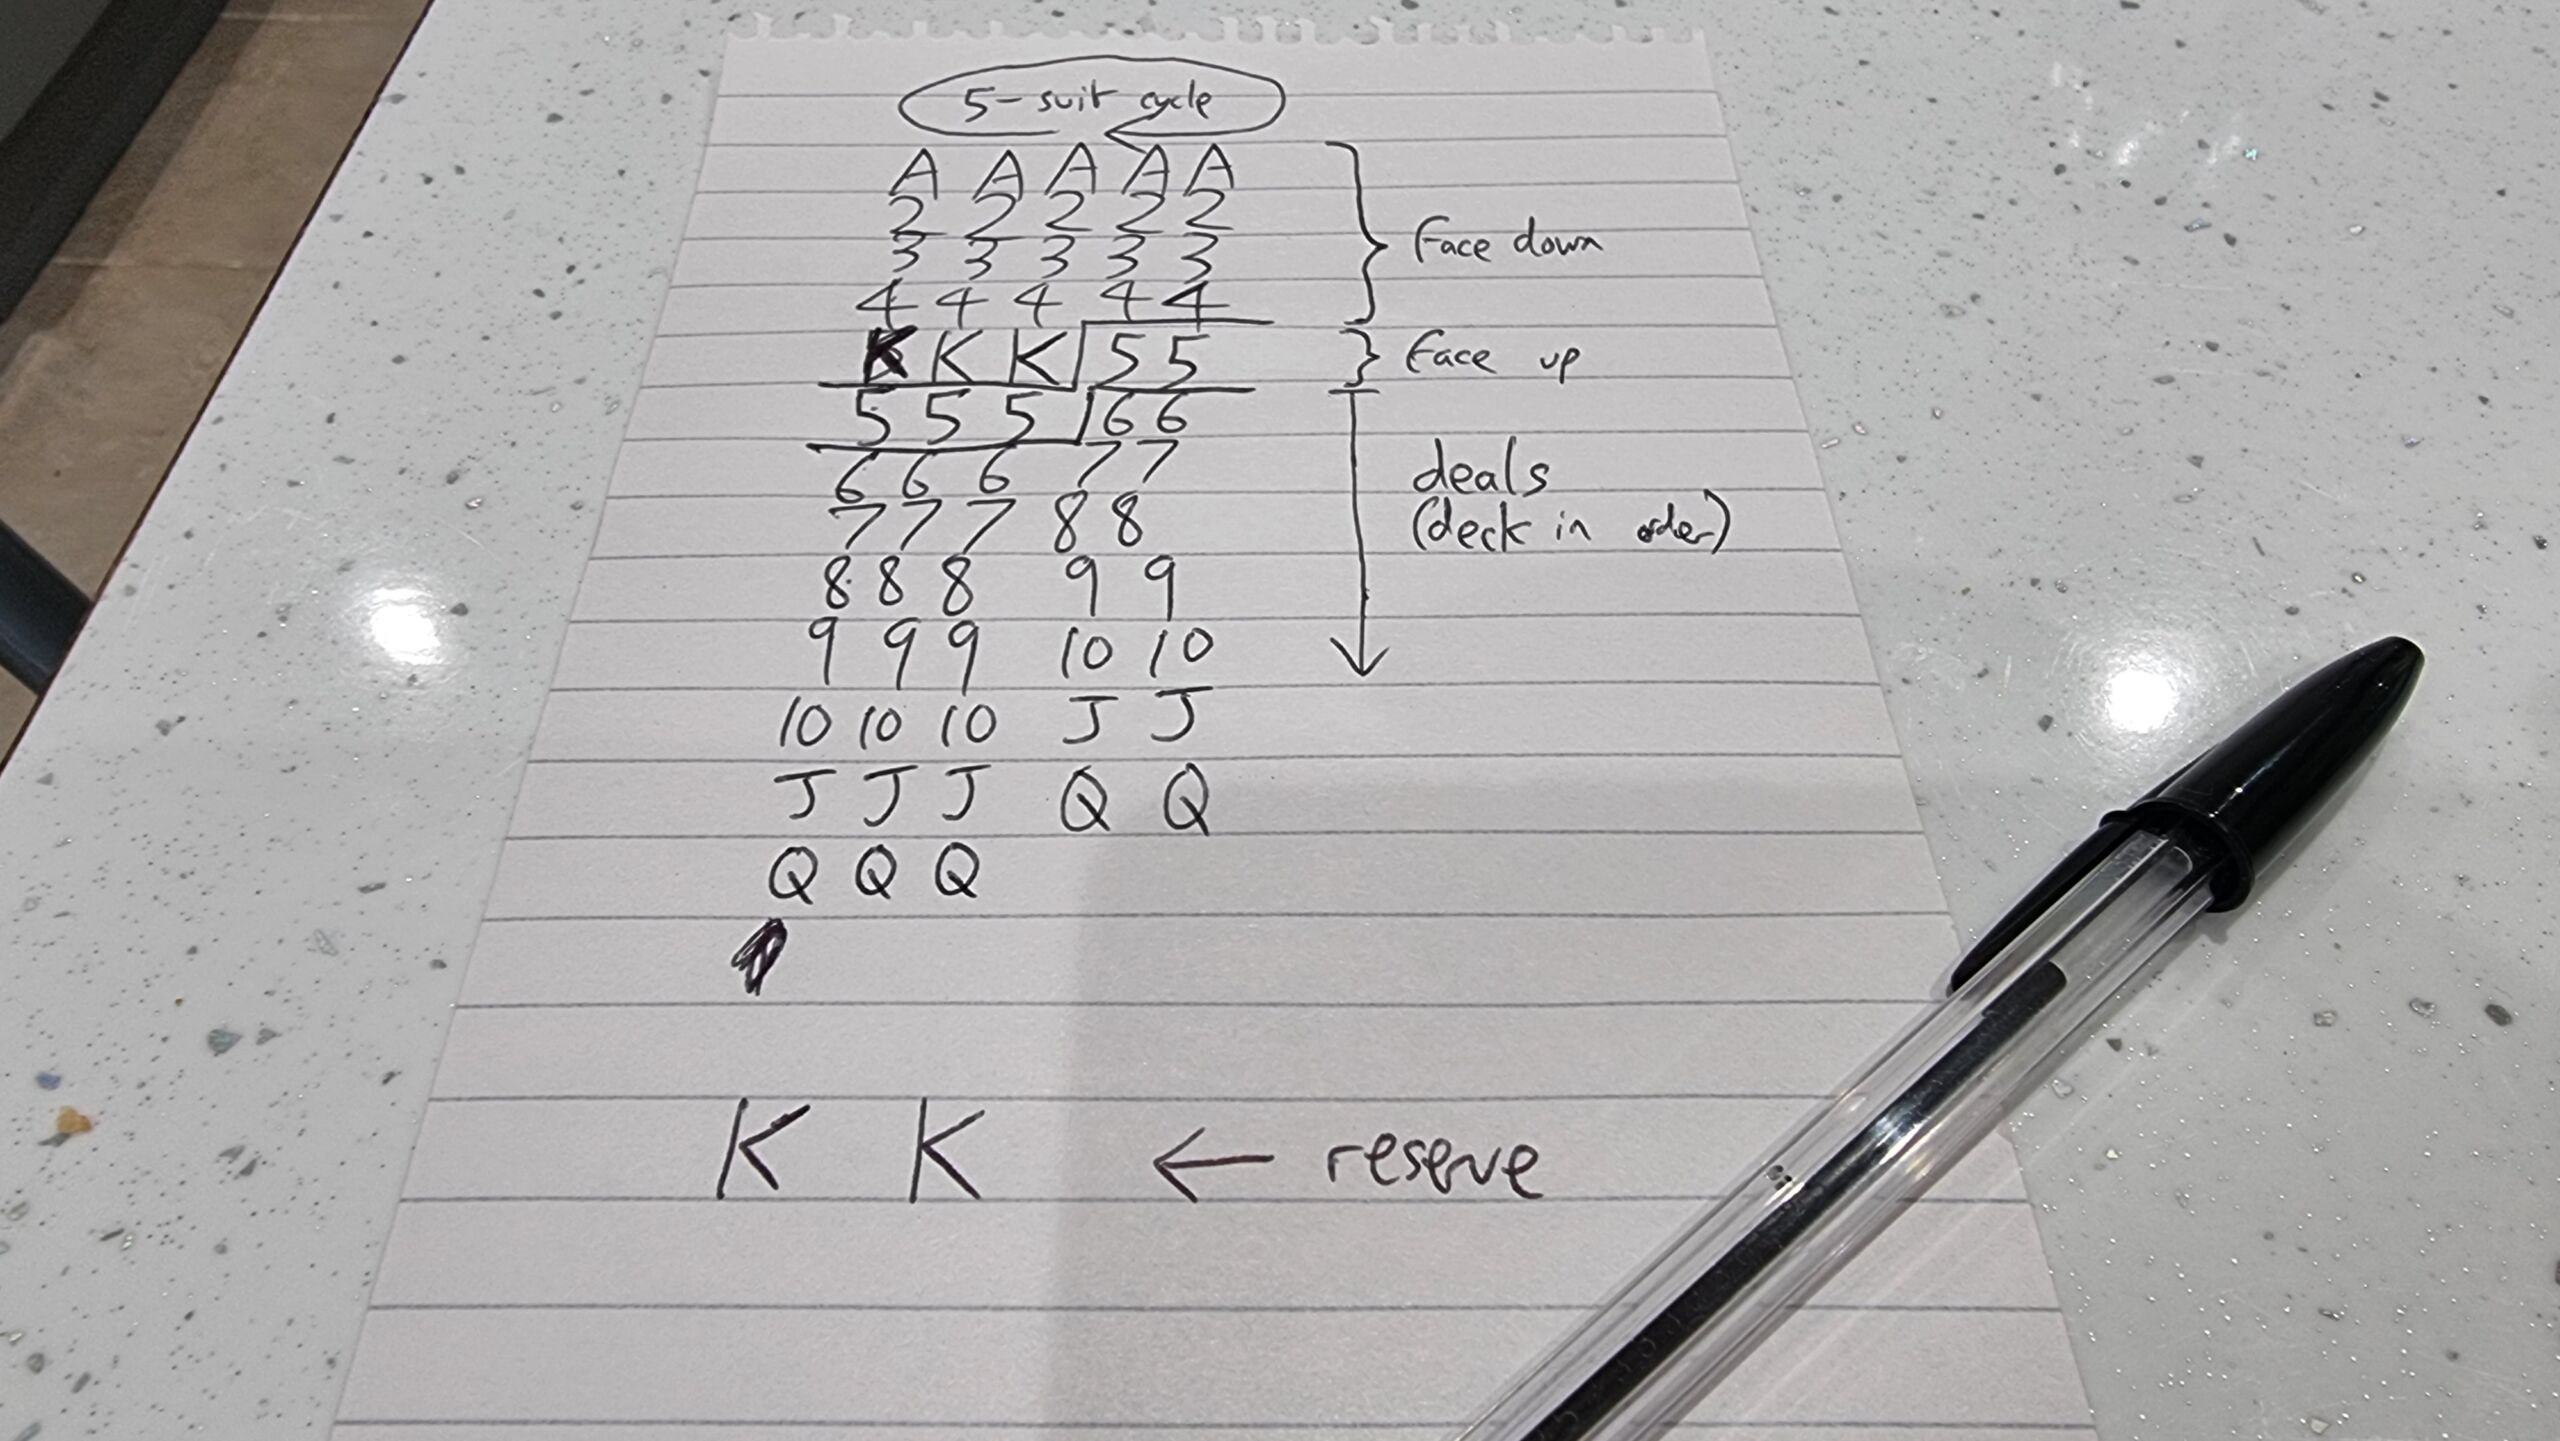 5-suit cycle
A A A A A
2 2 2 2 2
3 3 3 3 3 Face down
4 4 4 4 4
K K K 5 5 Face up
5 5 5 6 6
6 6 6 7 7 deals
7 7 7 8 8 (deck in order)
8 8 8 9 9
9 9 9 10 10
10 10 10 J J
J J J Q Q
Q Q Q
K K ← reserve